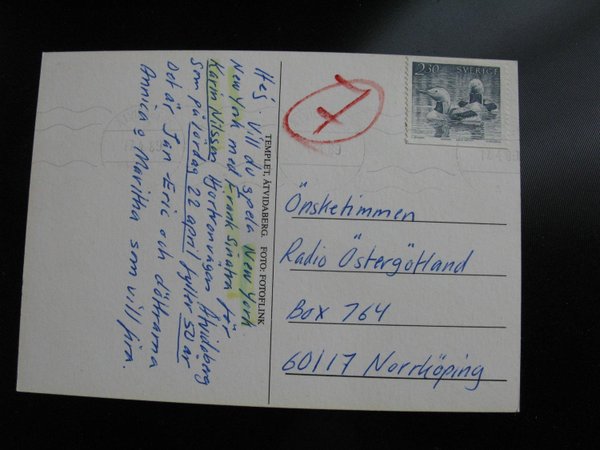 Hej. Vill du spela New York
New York med Frank Sinatra för
Karin Nilsson Hjortronvägen Åtvidaberg
som på lördag 22 april fyller 50 år
Det är Jan-Eric och döttrarna
Annica o Maritha som vill fira.
TEMPLET, ÅTVIDABERG. FOTO: FOTOFLINK
7
2.30 SVERIGE
Önsketimmen
Radio Östergötland
Box 764
60117 Norrköping